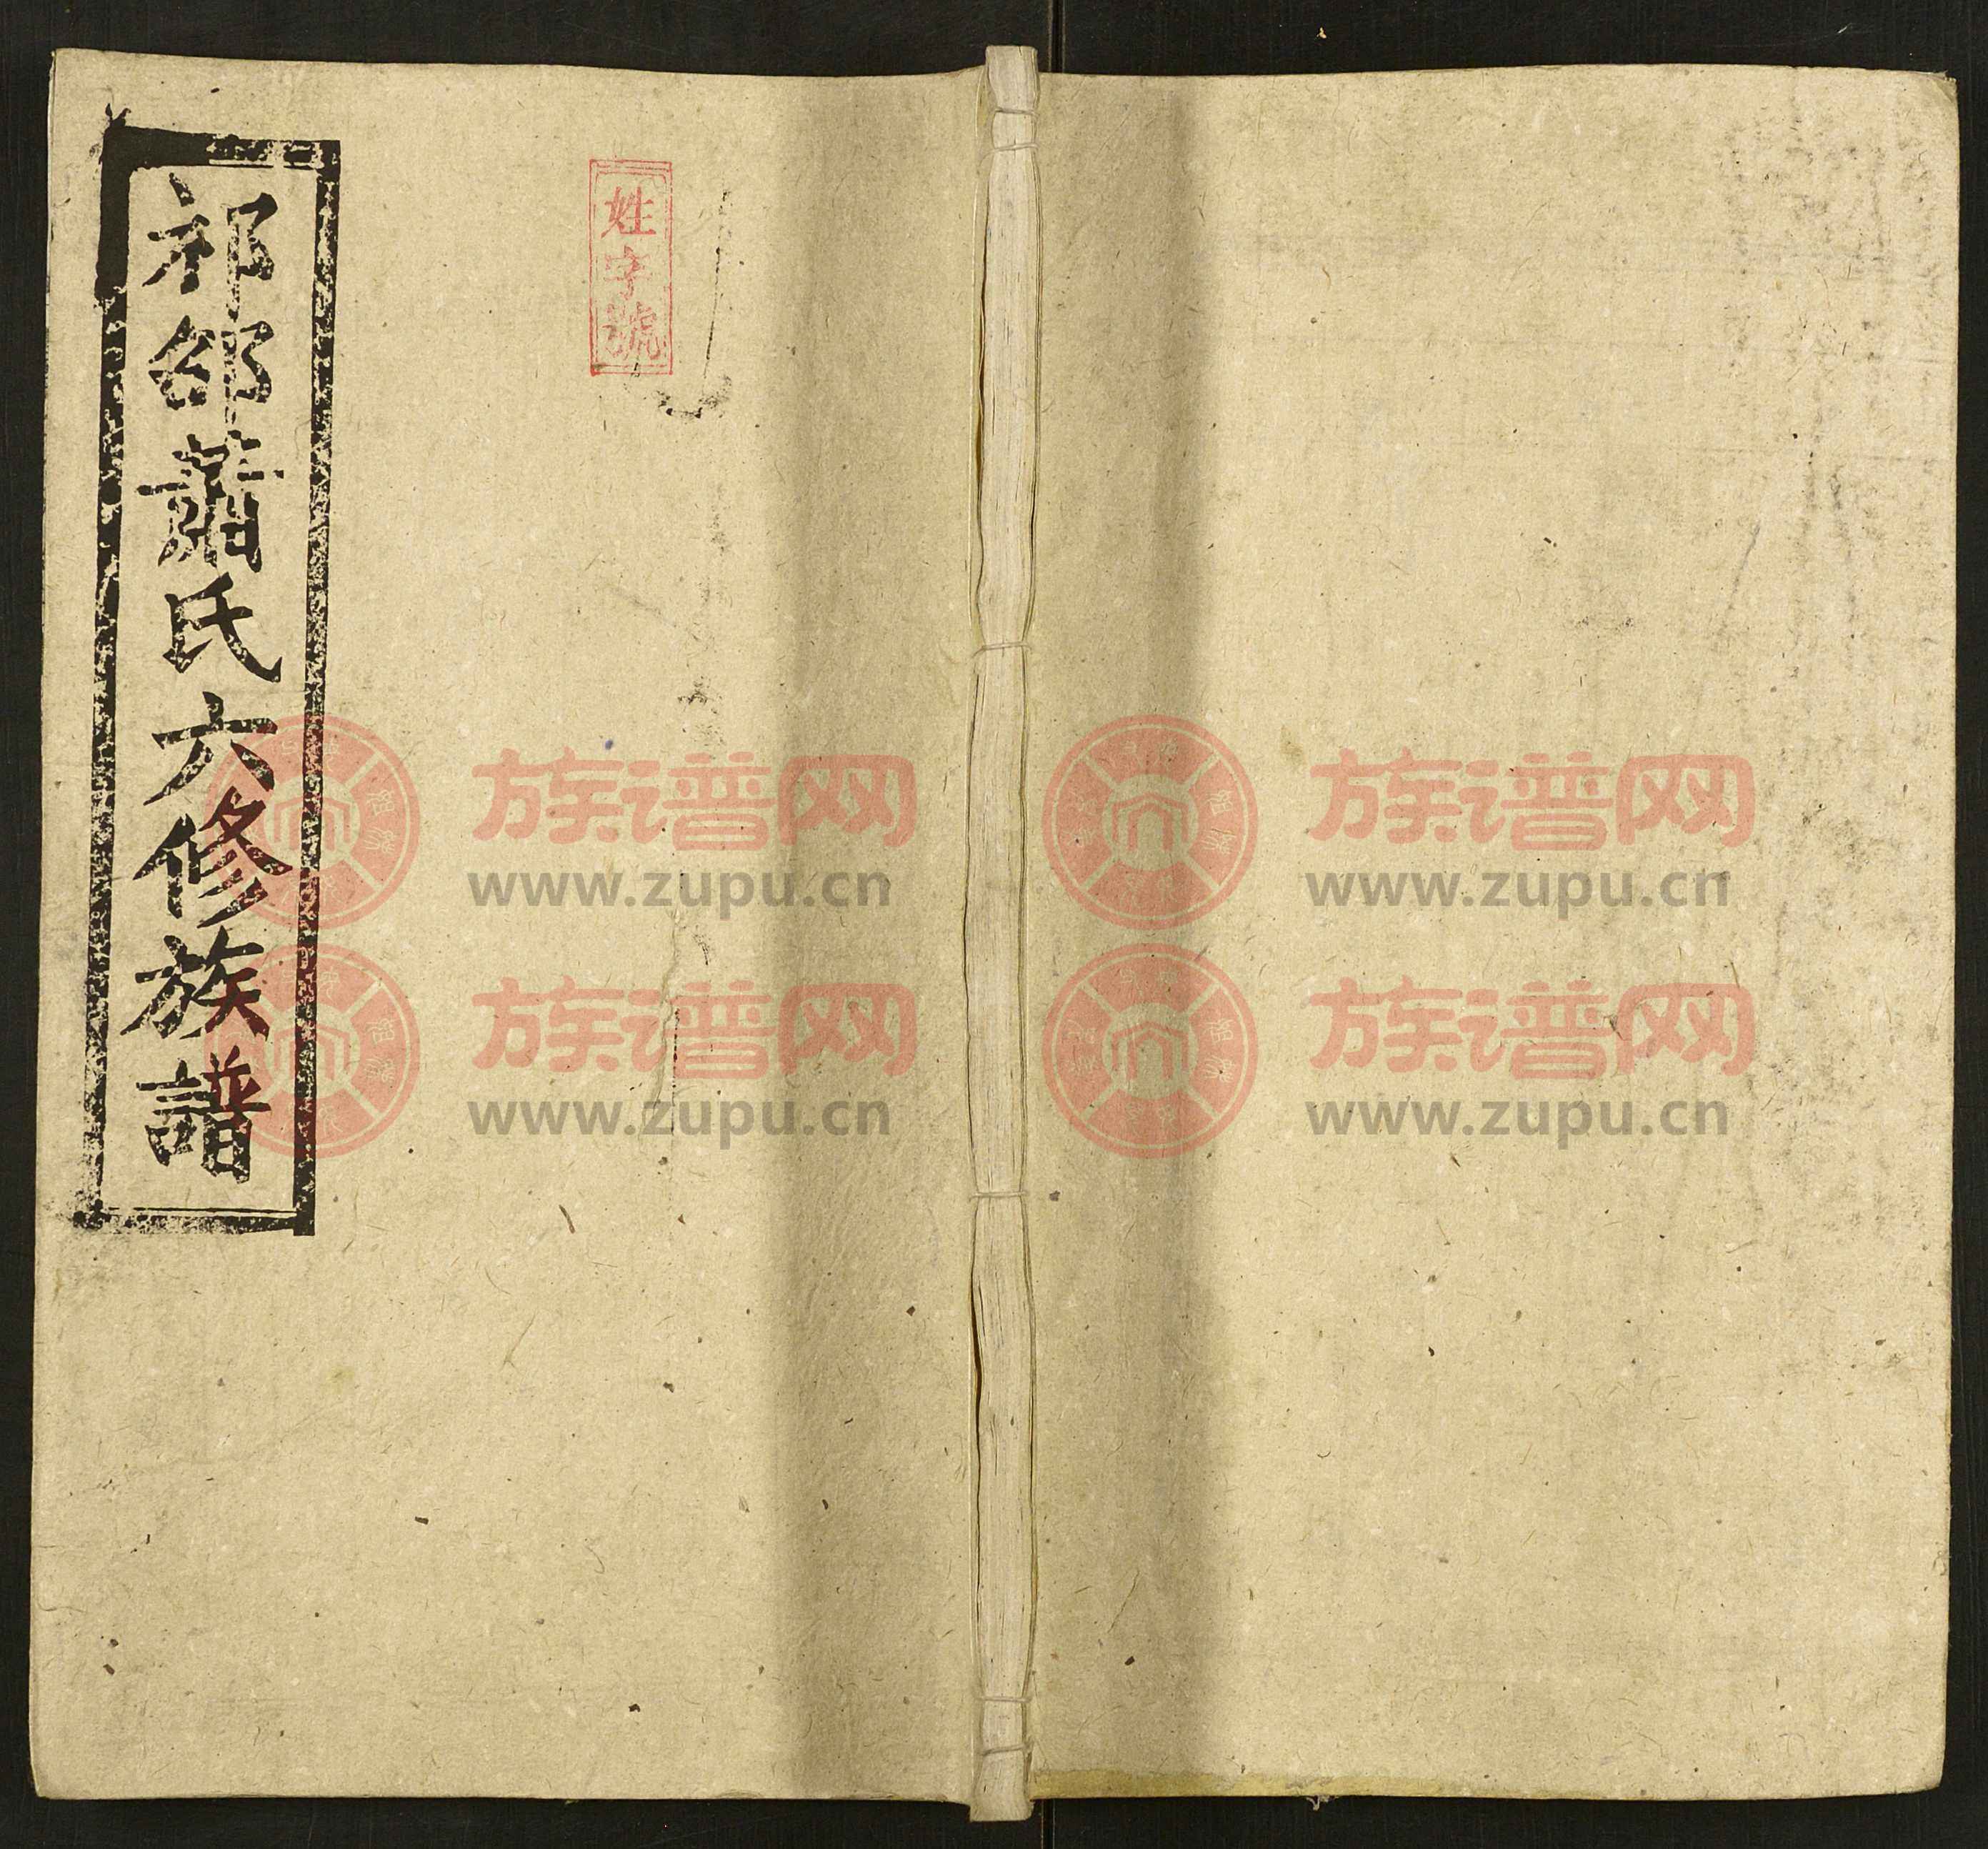 祁邵蕭氏六修族譜
姓字號
族谱网
www.zupu.cn
族谱网
www.zupu.cn
族谱网
www.zupu.cn
族谱网
www.zupu.cn